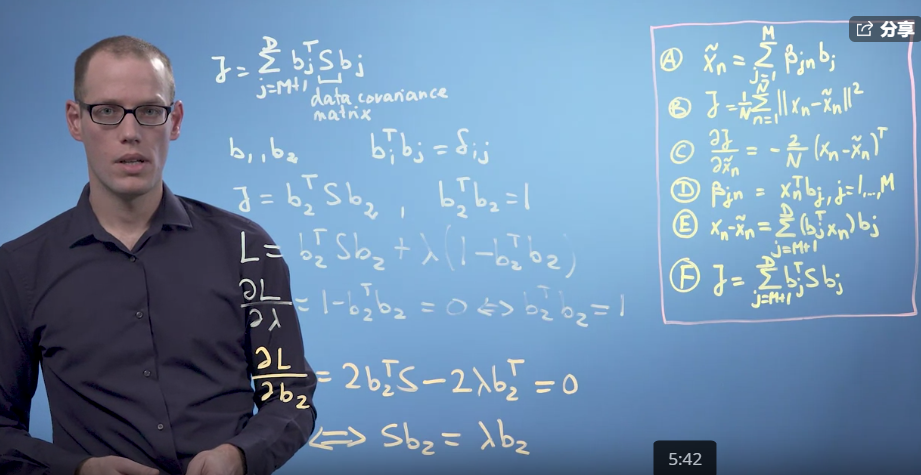 J = Σ_{j=M+1}^{D} b_j^T S b_j
data covariance
matrix
b_1, b_2   b_i^T b_j = δ_{ij}
J = b_2^T S b_2 , b_2^T b_2 = 1
L = b_2^T S b_2 + λ(1 - b_2^T b_2)
∂L/∂λ = 1 - b_2^T b_2 = 0 ⇔ b_2^T b_2 = 1
∂L/∂b_2 = 2b_2^T S - 2λb_2^T = 0
⇔ Sb_2 = λb_2
分享
Ⓐ x̃_n = Σ_{j=1}^{M} β_{jn} b_j
Ⓑ J = 1/N Σ_{n=1}^{N} ||x_n - x̃_n||^2
Ⓒ ∂J/∂x̃_n = - 2/N (x_n - x̃_n)^T
Ⓓ β_{jn} = x_n^T b_j, j=1,...,M
Ⓔ x_n - x̃_n = Σ_{j=M+1}^{D} (b_j^T x_n) b_j
Ⓕ J = Σ_{j=M+1}^{D} b_j^T S b_j
5:42